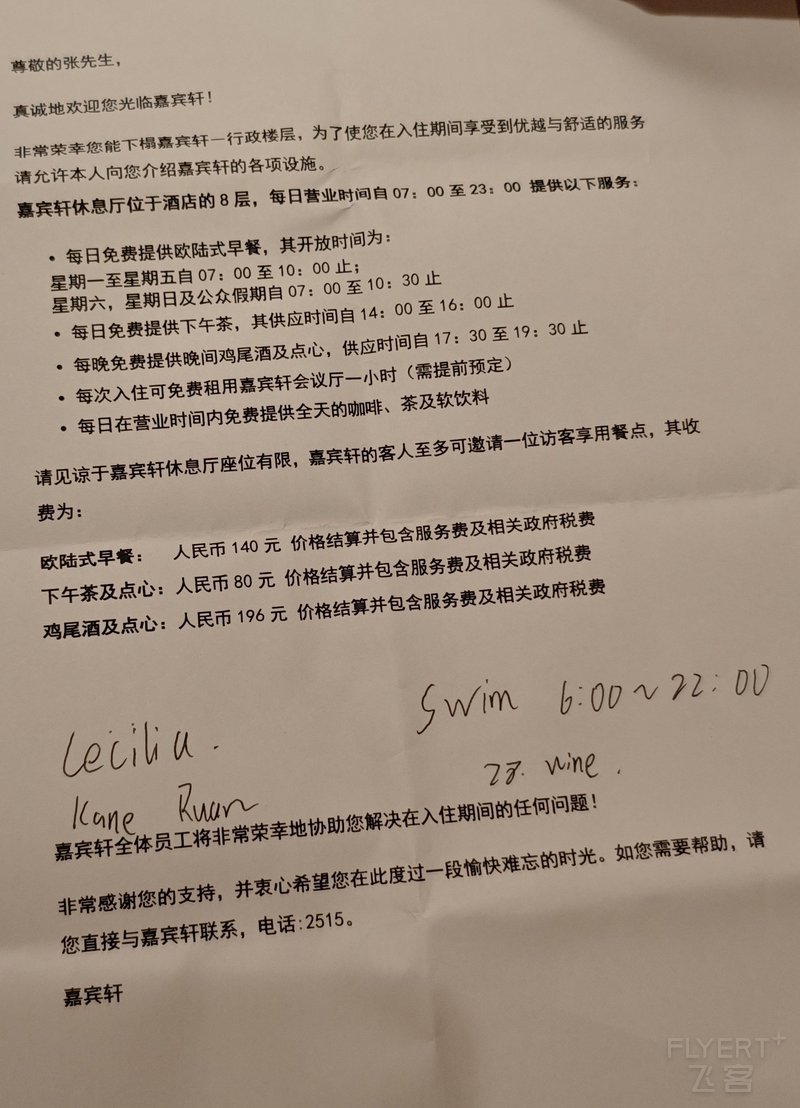 尊敬的张先生，
真诚地欢迎您光临嘉宾轩！
非常荣幸您能下榻嘉宾轩—行政楼层，为了使您在入住期间享受到优越与舒适的服务
请允许本人向您介绍嘉宾轩的各项设施。
嘉宾轩休息厅位于酒店的8层，每日营业时间自07：00至23：00 提供以下服务：
• 每日免费提供欧陆式早餐，其开放时间为：
星期一至星期五自07：00至10：00止；
星期六，星期日及公众假期自07：00至10：30止
• 每日免费提供下午茶，其供应时间自14：00至16：00止
• 每晚免费提供晚间鸡尾酒及点心，供应时间自17：30至19：30止
• 每次入住可免费租用嘉宾轩会议厅一小时（需提前预定）
• 每日在营业时间内免费提供全天的咖啡、茶及软饮料
请见谅于嘉宾轩休息厅座位有限，嘉宾轩的客人至多可邀请一位访客享用餐点，其收
费为：
欧陆式早餐： 人民币140元 价格结算并包含服务费及相关政府税费
下午茶及点心：人民币80元 价格结算并包含服务费及相关政府税费
鸡尾酒及点心：人民币196元 价格结算并包含服务费及相关政府税费
Swim 6:00~22:00
Cecilia.
wine.
Kane Ruan
嘉宾轩全体员工将非常荣幸地协助您解决在入住期间的任何问题！
非常感谢您的支持，并衷心希望您在此度过一段愉快难忘的时光。如您需要帮助，请
您直接与嘉宾轩联系，电话:2515。
嘉宾轩
FLYERT+
飞客